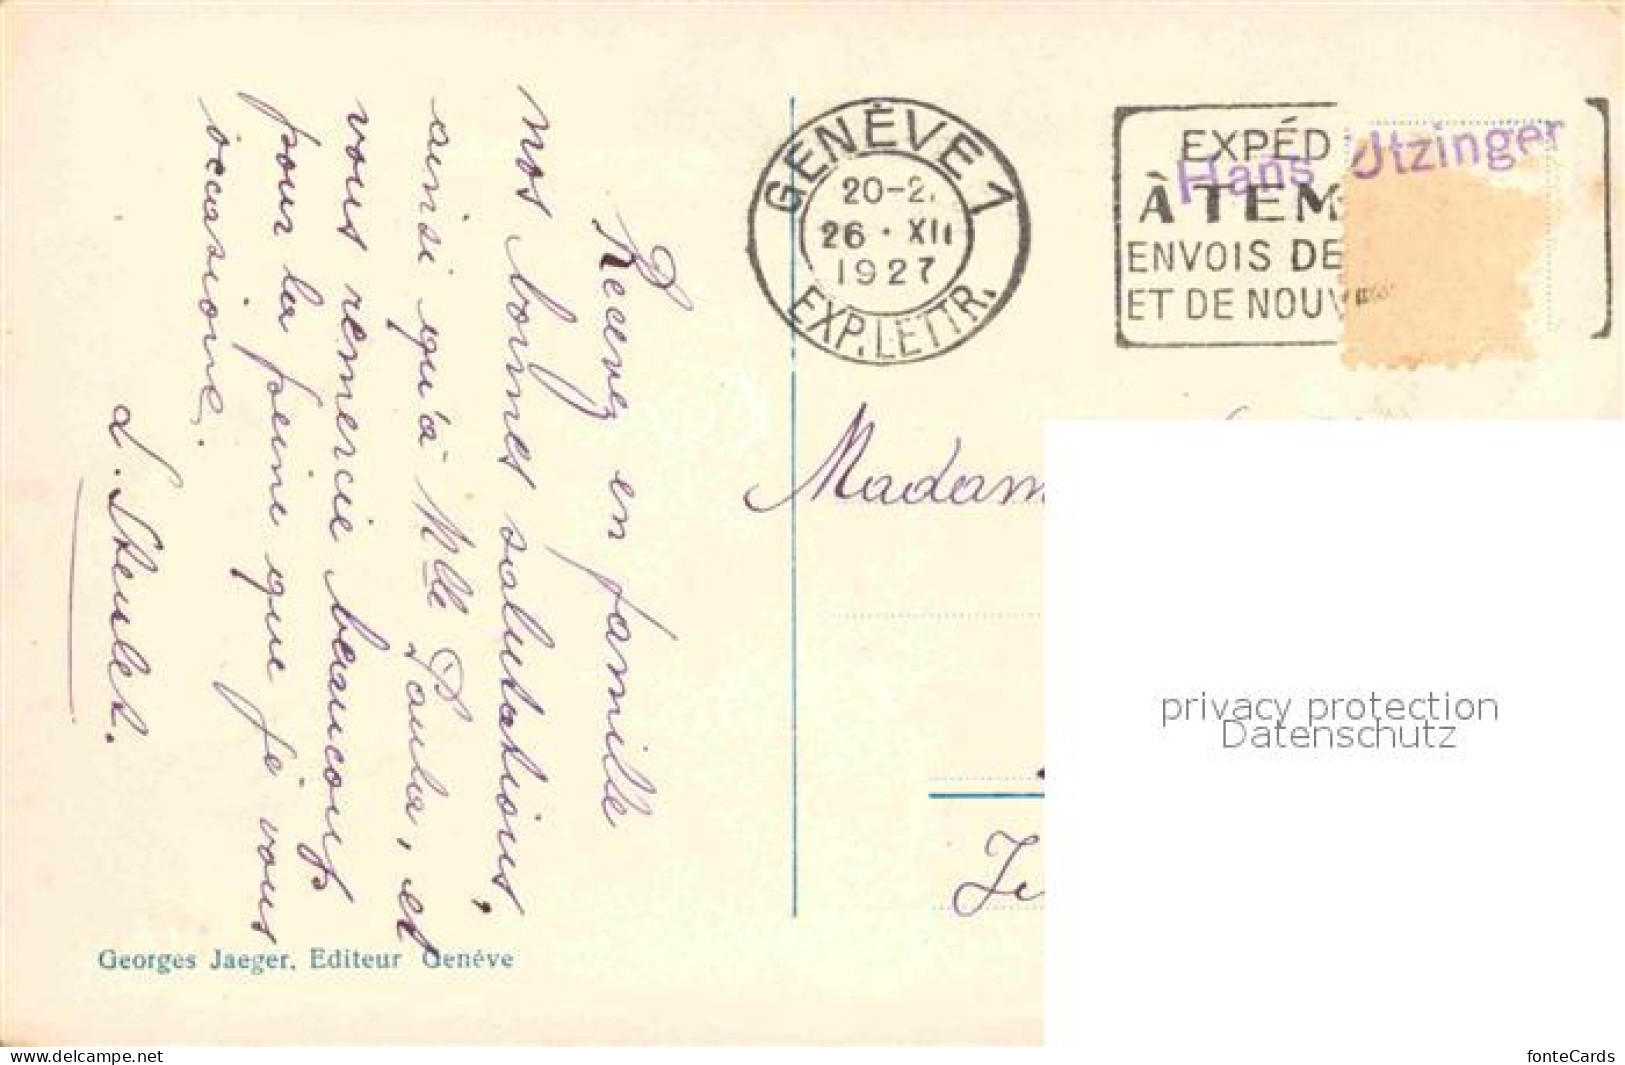 Recevez en famille
nos bonnes salutations,
ainsi qu'à Mlle Paula, et
vous remercie beaucoup
pour la peine que je vous
occasionne.
Georges Jaeger, Editeur Genève
GENÈVE 1
20-2
26 · XII
1927
EXP. LETTR.
EXPÉD
À TEM
ENVOIS DE
ET DE NOUV
Hans Utzinger
Madam
privacy protection
Datenschutz
www.delcampe.net
fonteCards